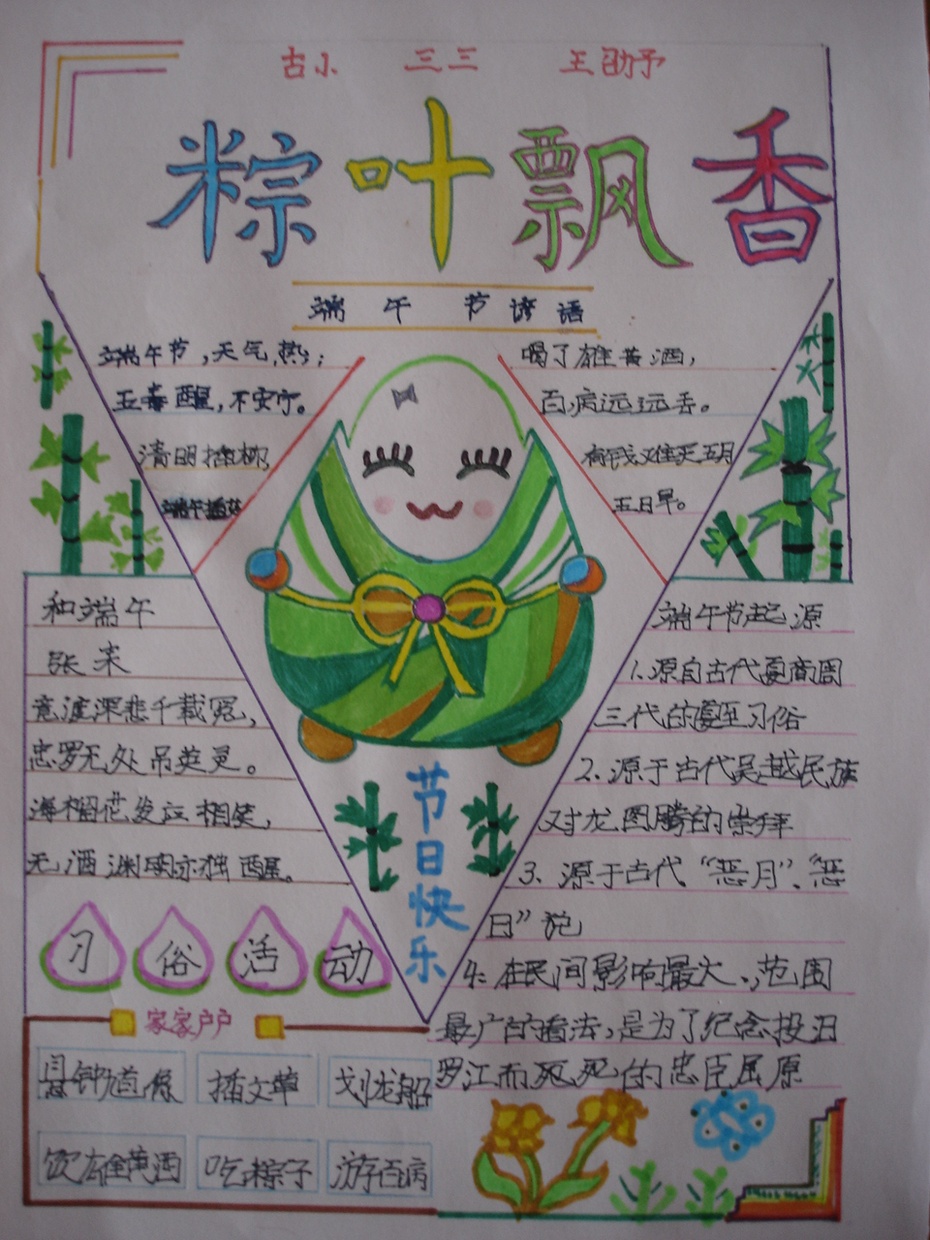 古小 三三 王勖予
粽叶飘香
端午节谚语
端午节,天气热;
五毒醒,不安宁。
清明插柳,
端午插艾
喝了雄黄酒,
百病远远丢。
有钱难买五月
五日旱。
和端午
张耒
竞渡深悲千载冤,
忠罗无处吊英灵。
海榴花发应相笑,
无酒渊明亦独醒。
习俗活动
家家户户
悬钟馗像 插文草 划龙船
饮雄黄酒 吃粽子 游百病
节日快乐
端午节起源
1.源自古代夏商周
三代的夏至习俗
2.源于古代吴越民族
对龙图腾的崇拜
3.源于古代“恶月”、“恶
日”说
4.在民间影响最大、范围
最广的看法,是为了纪念投汨
罗江而死死的忠臣屈原